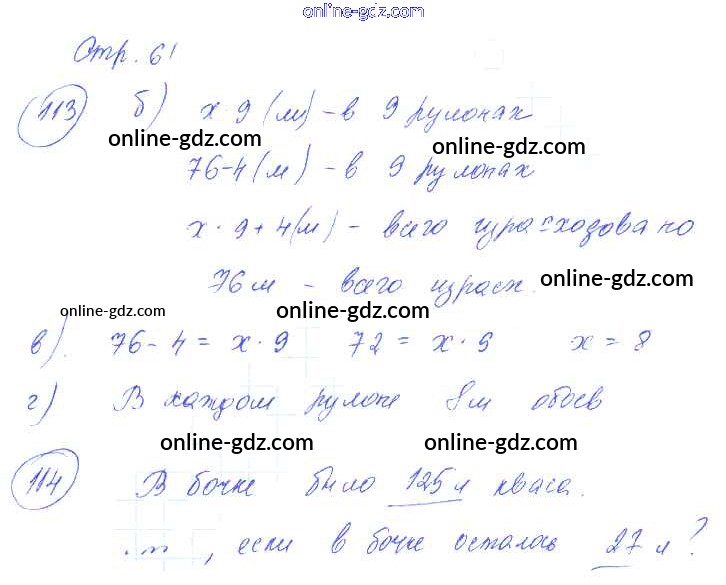 online-gdz.com
Стр. 61
113 б) x·9 (м) - в 9 рулонах
online-gdz.com online-gdz.com
76-4 (м) - в 9 рулонах
x·9+4(м) - всего израсходовано
76м - всего израсх. online-gdz.com
online-gdz.com online-gdz.com
в). 76-4 = x·9 72 = x·9 x = 8
г) В каждом рулоне 8м обоев
online-gdz.com online-gdz.com
114 В бочке было 125 л кваса.
, если в бочке осталось 27 л?